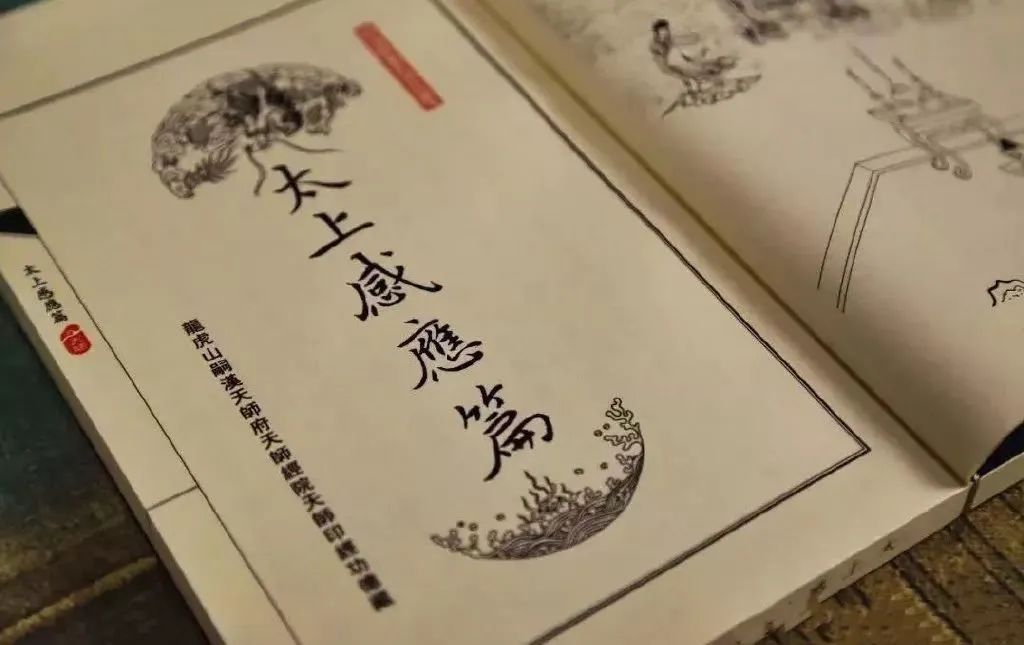 太上感應篇
龍虎山嗣漢天師府天師經院天師印經功德處
太上感應篇